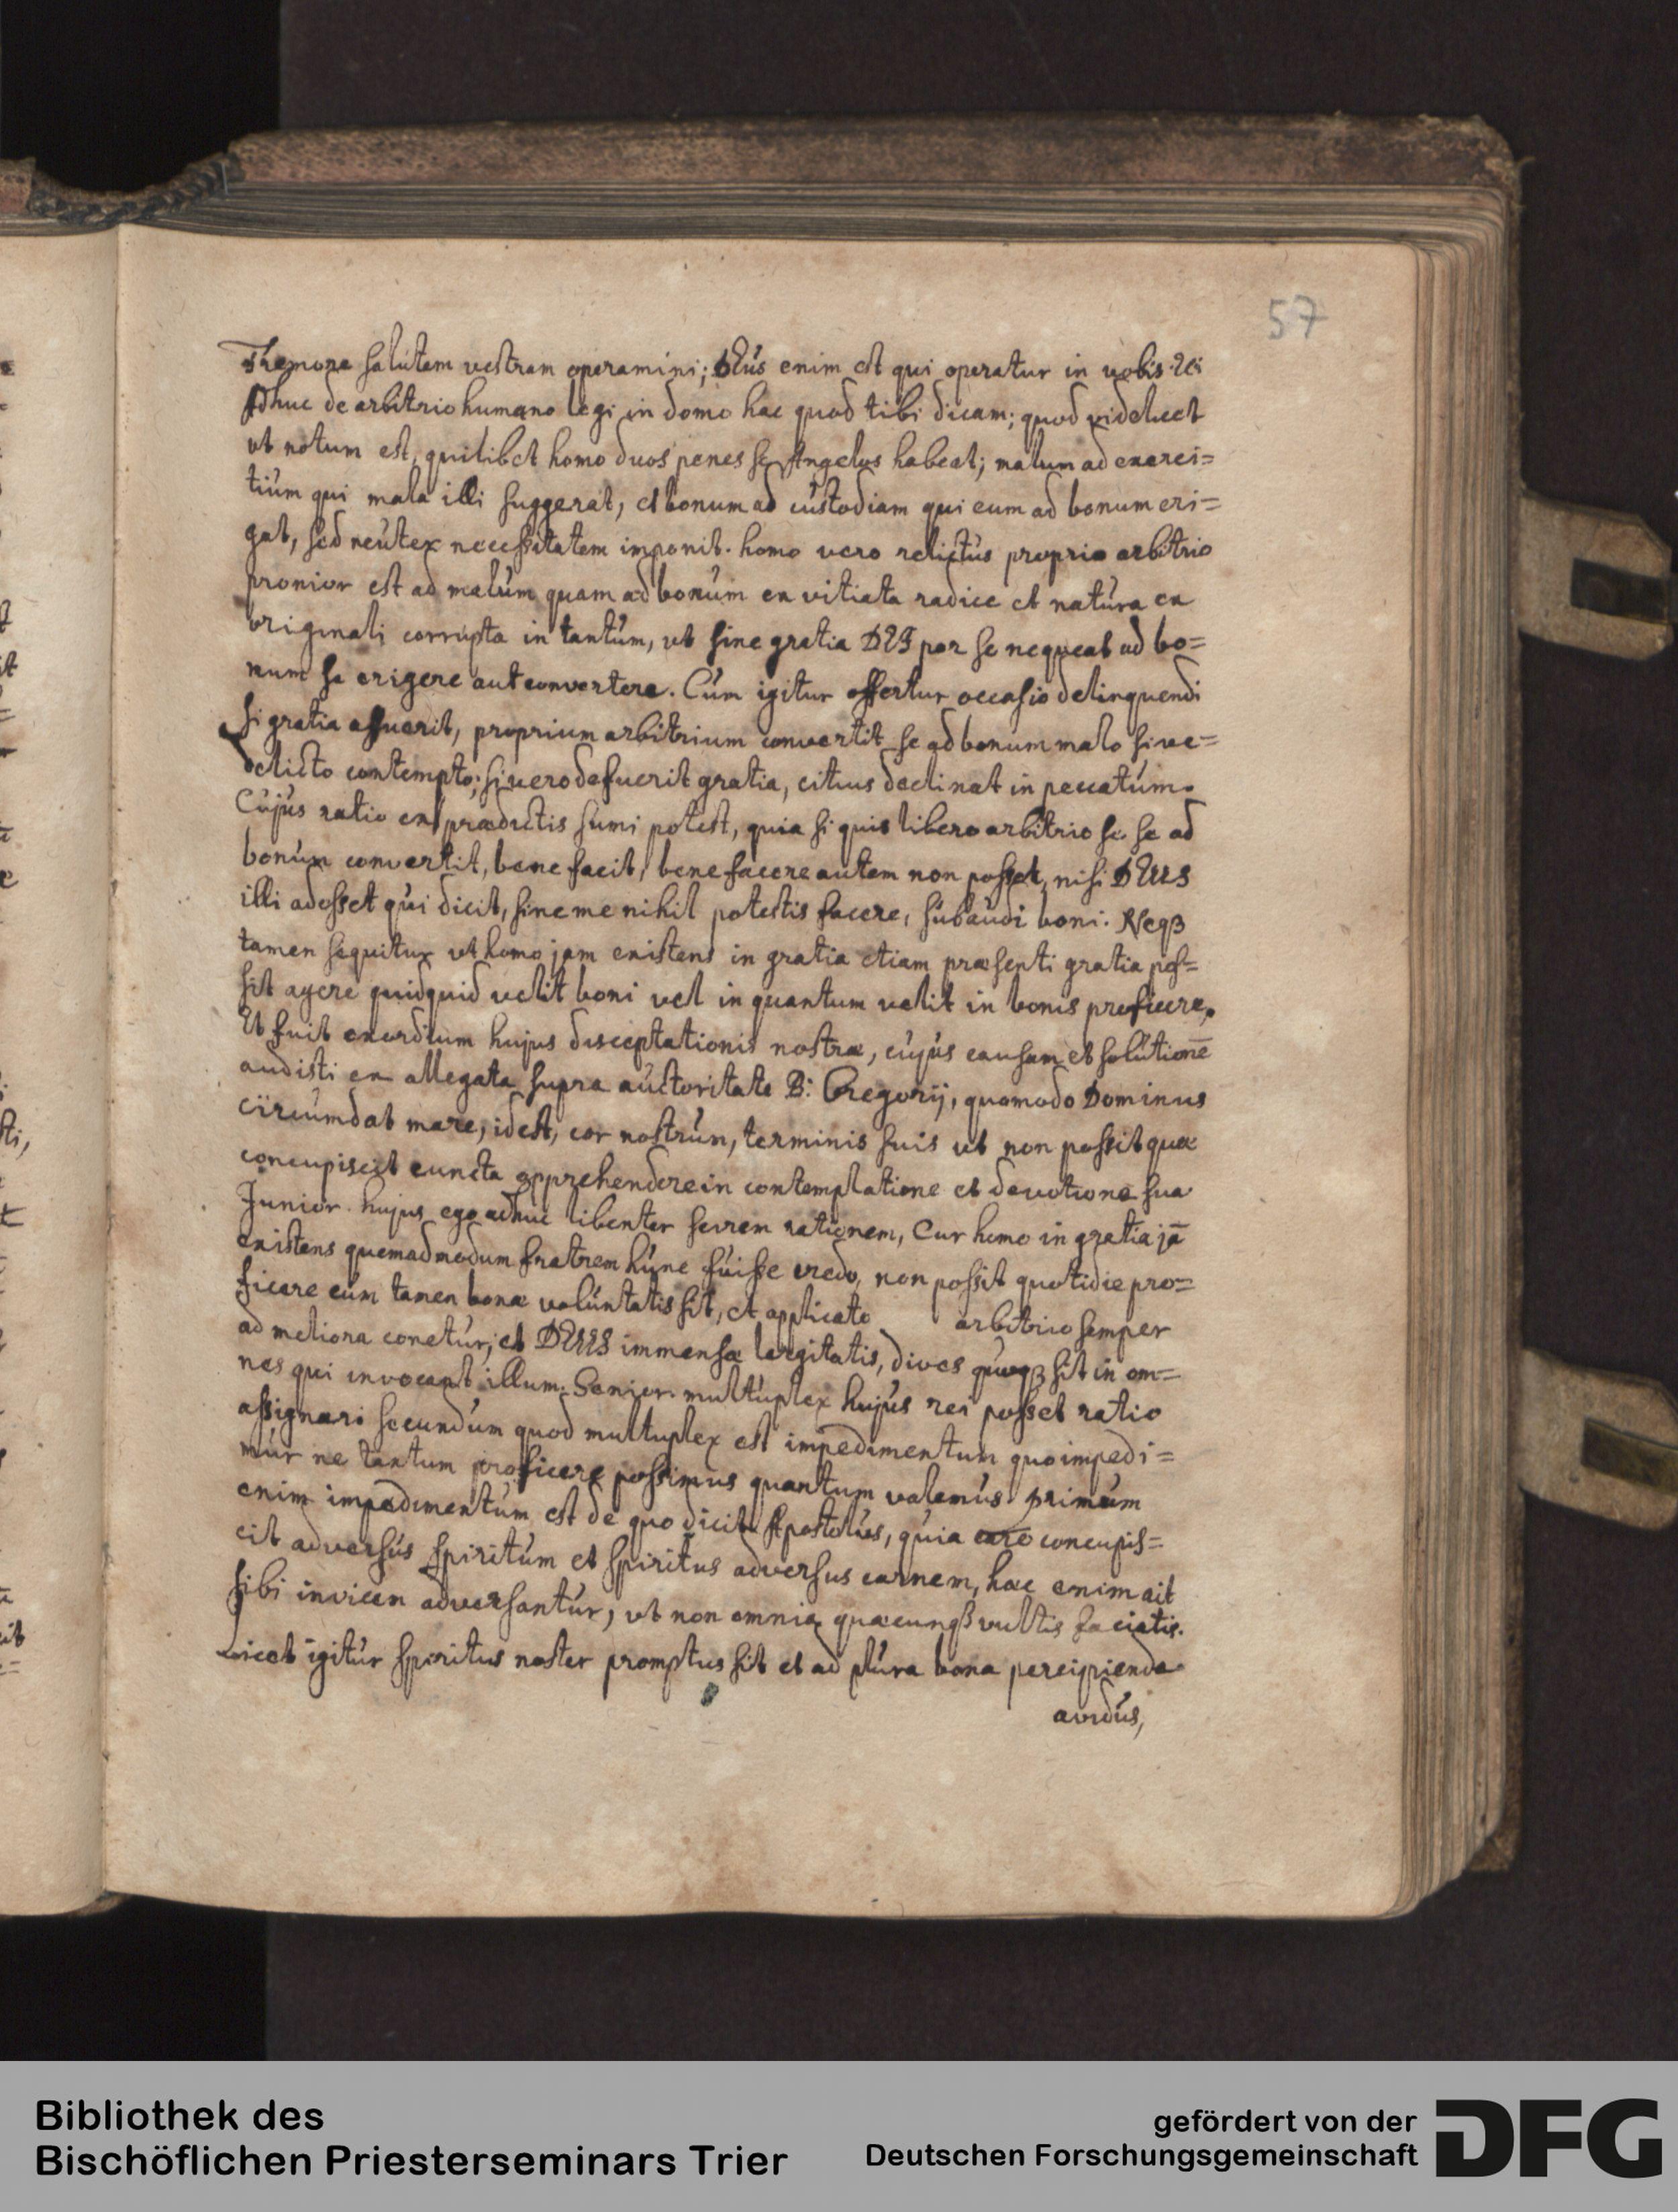 57
Tremore salutem vestram operamini; DEus enim est qui operatur in vobis &c:
Adhuc de arbitrio humano legi in domo hac quod tibi dicam; quod videlicet
ut notum est, quilibet homo duos penes se Angelos habeat; malum ad exerci=
tium qui mala illi suggerat, et bonum ad custodiam qui eum ad bonum eri=
gat, sed neuter necessitatem imponit. homo vero relictus proprio arbitrio
pronior est ad malum quam ad bonum ex vitiata radice et natura ex
originali corrupta in tantum, ut sine gratia DEI per se nequeat ad bo=
num se erigere aut convertere. Cum igitur offertur occasio delinquendi
si gratia affuerit, proprium arbitrium convertit se ad bonum malo sive=
delicto contempto; si vero defuerit gratia, citius declinat in peccatum.
Cujus ratio ex prædictis sumi potest, quia si quis libero arbitrio se se ad
bonum convertit, bene facit, bene facere autem non posset, nisi DEUS
illi adesset qui dicit, sine me nihil potestis facere, subaudi boni. Neqꝫ
tamen sequitur ut homo jam existens in gratia etiam præsenti gratia pos=
sit agere quidquid velit boni vel in quantum velit in bonis proficere.
Et fuit exordium hujus disceptationis nostræ, cujus causam et solutionē
audisti ex allegata supra auctoritate B: Gregorij, quomodo Dominus
circumdat mare, id est, cor nostrum, terminis suis ut non possit quæ
concupiscit cuncta apprehendere in contemplatione et devotione sua
Junior. hujus ego adhuc libenter scirem rationem, Cur homo in gratia jā
existens quemadmodum fratrem hunc fuisse credo, non possit quotidie pro=
ficere cum tamen bonæ voluntatis sit, et applicato arbitrio semper
ad meliora conetur; et DEUS immensæ largitatis, dives quoqꝫ sit in om=
nes qui invocant illum. Senior. multuplex hujus rei posset ratio
assignari secundum quod multuplex est impedimentum quo impedi=
mur ne tantum proficere possimus quantum valemus. primum
enim impedimentum est de quo dicit Apostolus, quia caro concupis=
cit adversus spiritum et spiritus adversus carnem, hæc enim ait
sibi invicem adversantur, ut non omnia quæcunqꝫ vultis faciatis.
Licet igitur spiritus noster promptus sit et ad plura bona percipienda
avidus,
Bibliothek des
Bischöflichen Priesterseminars Trier
gefördert von der
Deutschen Forschungsgemeinschaft
DFG